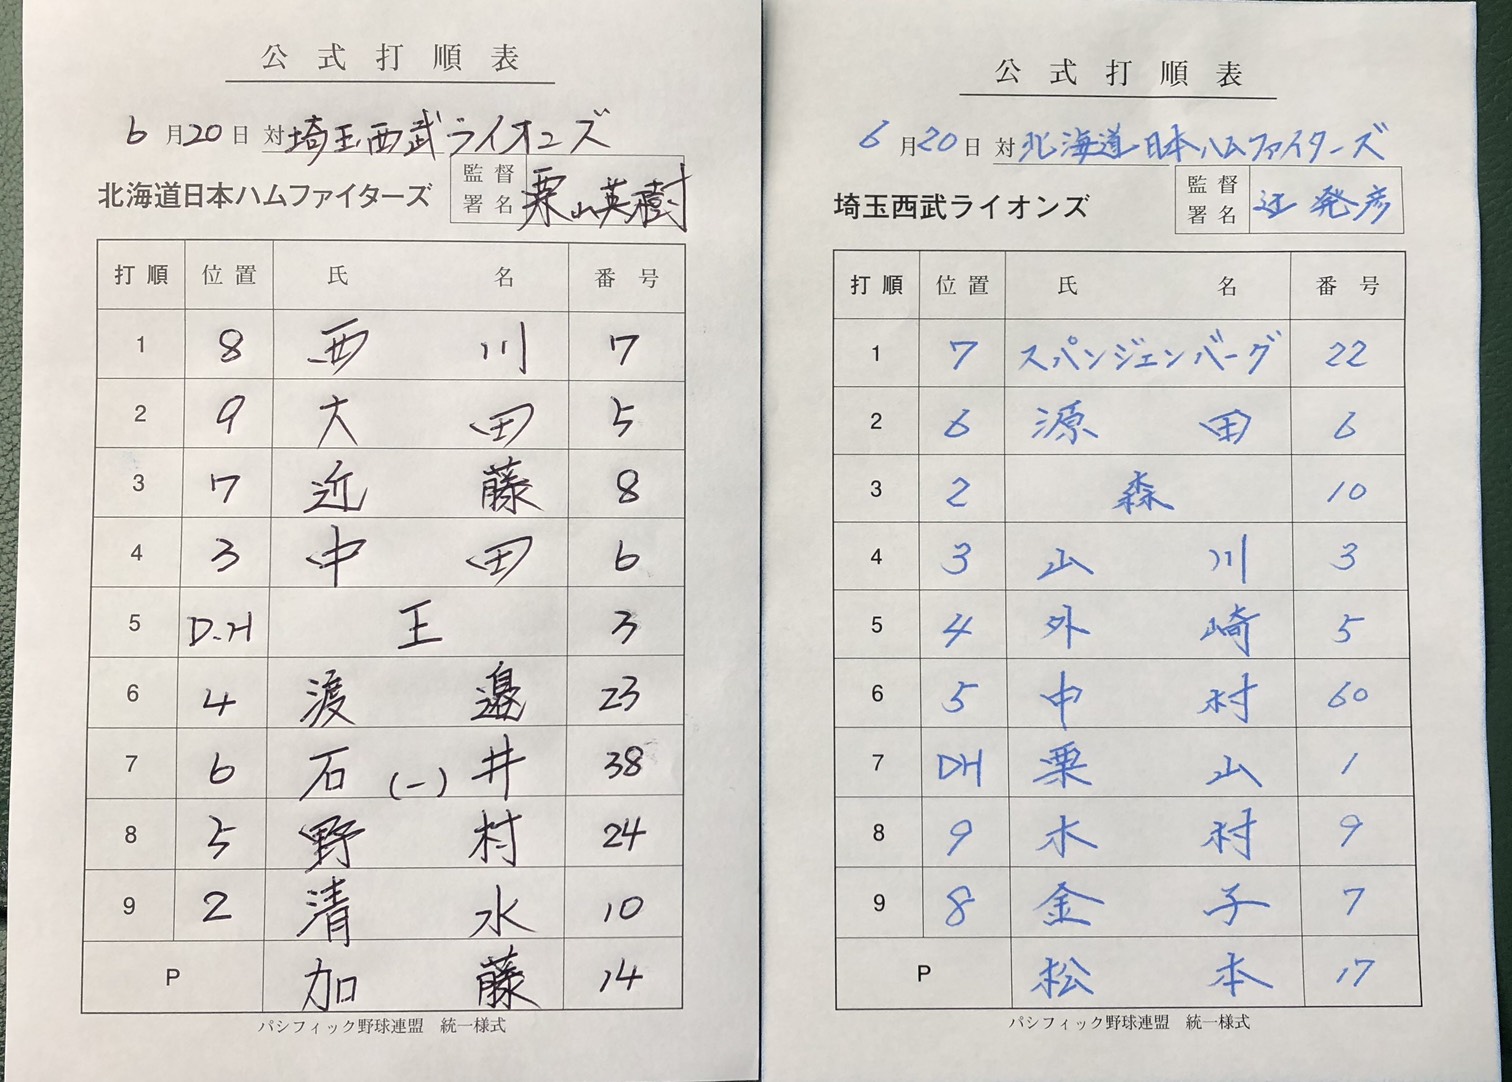 公式打順表
6月20日 対 埼玉西武ライオンズ
北海道日本ハムファイターズ 監督署名 栗山英樹
打順 位置 氏名 番号
1 8 西川 7
2 9 大田 5
3 7 近藤 8
4 3 中田 6
5 D.H 王 3
6 4 渡邉 23
7 6 石(一)井 38
8 5 野村 24
9 2 清水 10
P 加藤 14
パシフィック野球連盟 統一様式
公式打順表
6月20日 対 北海道日本ハムファイターズ
埼玉西武ライオンズ 監督署名 辻発彦
打順 位置 氏名 番号
1 7 スパンジェンバーグ 22
2 6 源田 6
3 2 森 10
4 3 山川 3
5 4 外崎 5
6 5 中村 60
7 DH 栗山 1
8 9 木村 9
9 8 金子 7
P 松本 17
パシフィック野球連盟 統一様式